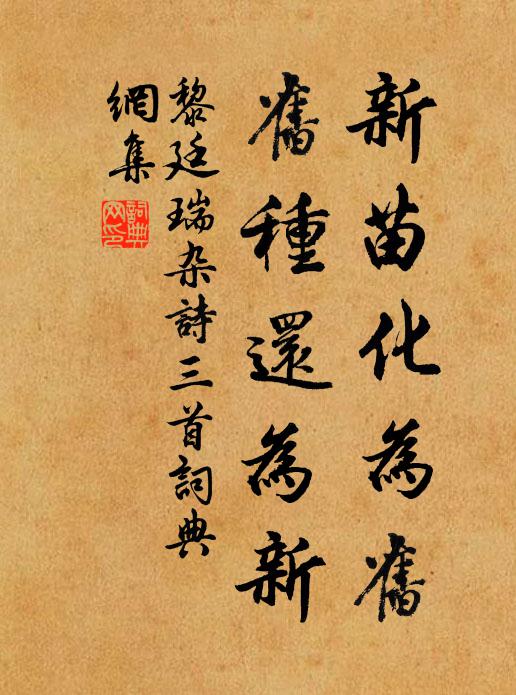 新苗化為舊
舊種還為新
黎廷瑞杂詩三首詞典
網集
詞典
网印